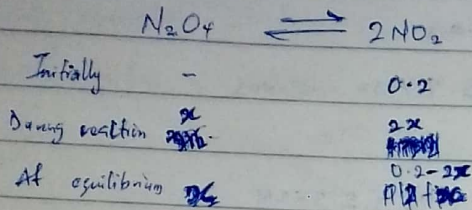 N₂O₄ ⇌ 2NO₂
Initially - 0.2
During reaction x 2x
At equilibrium x 0.2-2x